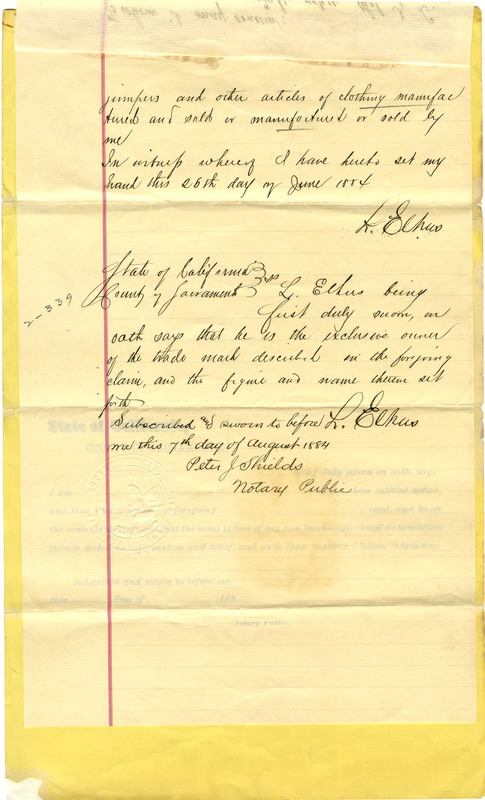 jumpers and other articles of clothing manufac
tured and sold or manufactured or sold by
me
In witness whereof I have hereto set my
hand this 26th day of June 1884
L. Elkus
State of California } ss
County of Sacramento } L. Elkus being
2-339
first duly sworn, on
oath says that he is the exclusive owner
of the trade mark described in the forgoing
claim, and the figure and name therein set
forth
Subscribed and sworn to before L. Elkus
me this 7th day of August 1884
Peter J Shields
Notary Public
State of
being duly sworn on oath, say:
I am
entitled action,
and that I foregoing
and know
the same is true of
therein stated on information and belief, and as to those
Subscribed and sworn to before me,
this day of 188
Notary Public.